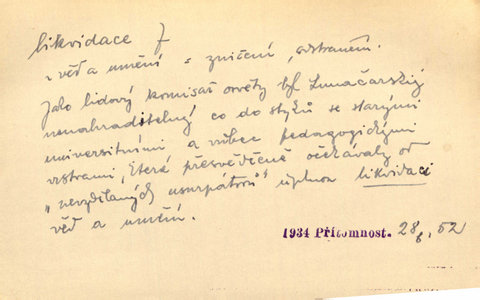 likvidace f
věd a umění = zničení, odstranění.
Jako lidový komisař osvěty byl Lunačarskij
nenahraditelný co do styků se starými
universitními a vůbec pedagogickými
vrstvami, která přesvědčeně očekávaly od
„nevzdělaných usurpátorů" úplnou likvidaci
věd a umění.
1934 Přítomnost. 28/6. 52